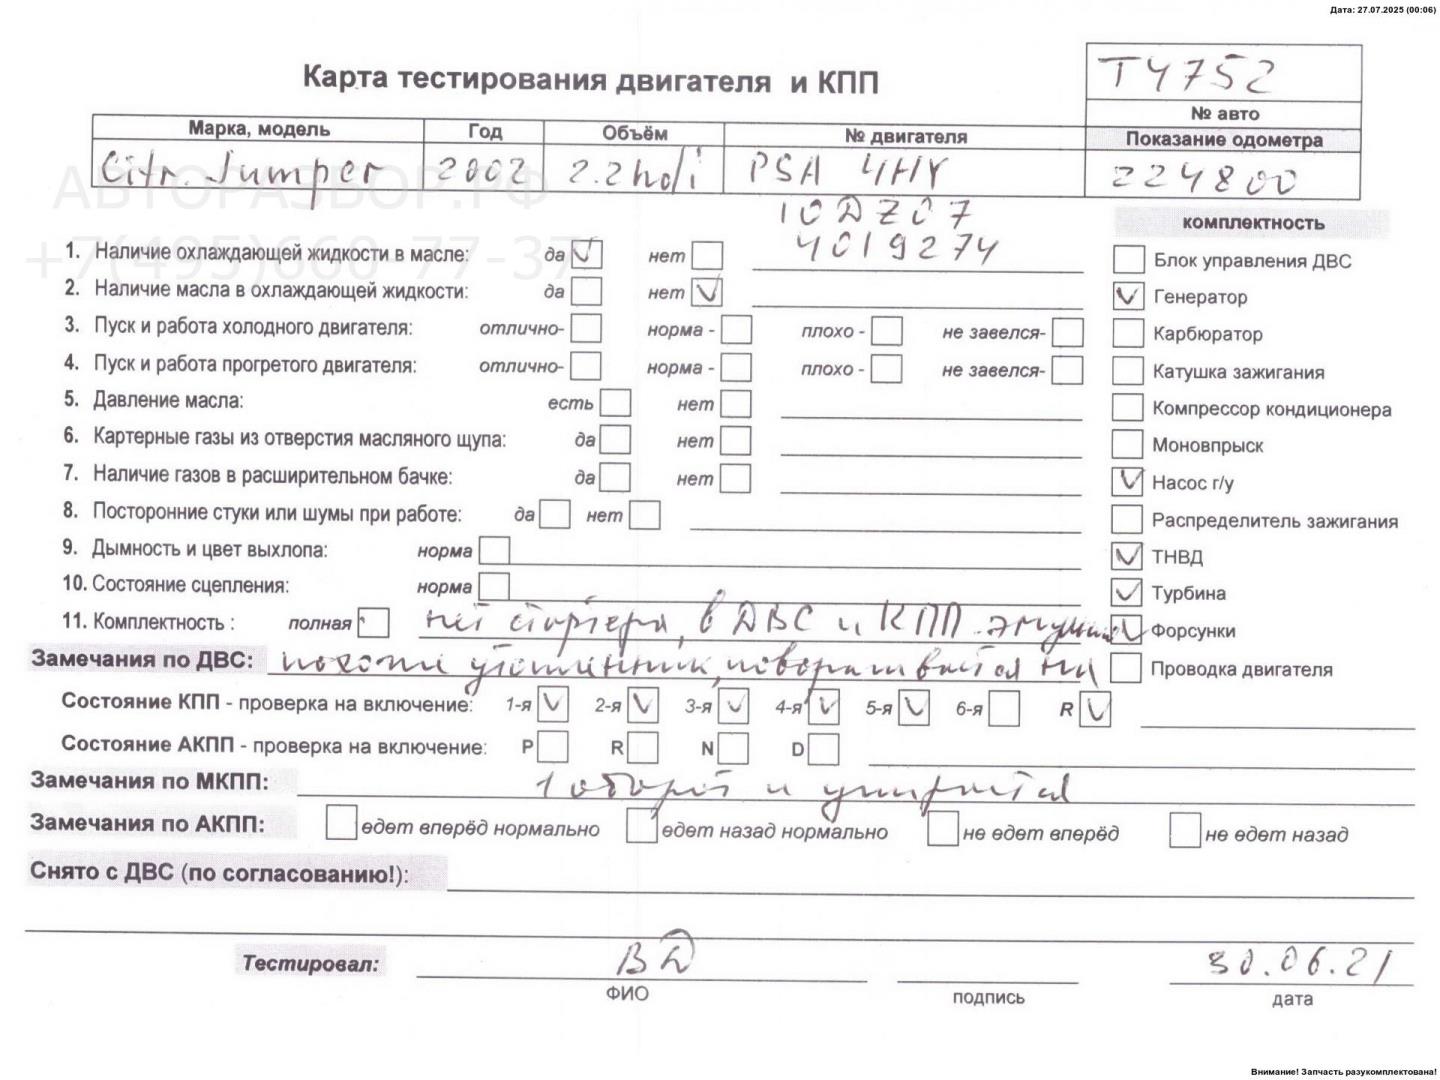 Дата: 27.07.2025 (00:06)
Карта тестирования двигателя и КПП
T4752
№ авто
Марка, модель Год Объём № двигателя Показание одометра
Citr. Jumper 2002 2.2hdi PSA 4HY 224800
10DZ07
4019274
АВТОРАЗБОР.РФ
+7(495)660-77-37
комплектность
1. Наличие охлаждающей жидкости в масле: да нет
Блок управления ДВС
2. Наличие масла в охлаждающей жидкости: да нет
Генератор
3. Пуск и работа холодного двигателя: отлично- норма - плохо - не завелся-
Карбюратор
4. Пуск и работа прогретого двигателя: отлично- норма - плохо - не завелся-
Катушка зажигания
5. Давление масла: есть нет
Компрессор кондиционера
6. Картерные газы из отверстия масляного щупа: да нет
Моновпрыск
7. Наличие газов в расширительном бачке: да нет
Насос г/у
8. Посторонние стуки или шумы при работе: да нет
Распределитель зажигания
9. Дымность и цвет выхлопа: норма
ТНВД
10. Состояние сцепления: норма
Турбина
11. Комплектность : полная нет стартера, в ДВС и КПП эмульсия
Форсунки
Замечания по ДВС: похоже утопленник, поворачивается на
Проводка двигателя
Состояние КПП - проверка на включение: 1-я 2-я 3-я 4-я 5-я 6-я R
Состояние АКПП - проверка на включение: P R N D
Замечания по МКПП: 1 оборот и упирается
Замечания по АКПП: едет вперёд нормально едет назад нормально не едет вперёд не едет назад
Снято с ДВС (по согласованию!):
Тестировал: ВД 30.06.21
ФИО подпись дата
Внимание! Запчасть разукомплектована!